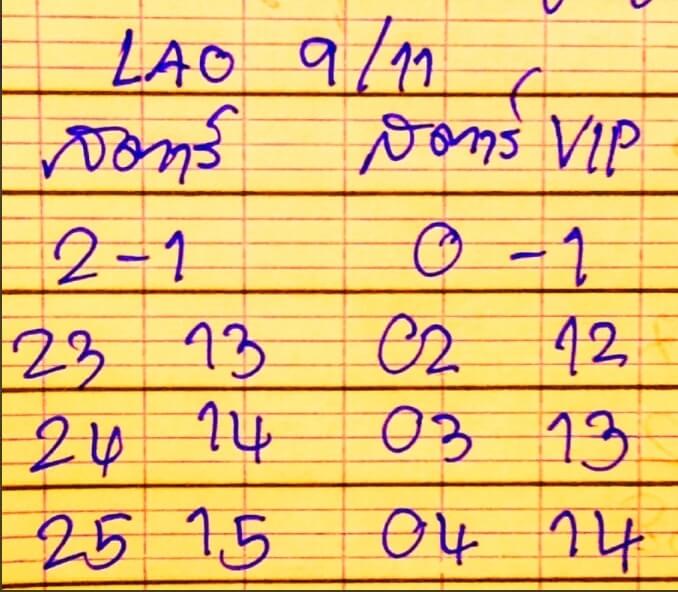 LAO 9/11
สตาร์ สตาร์ VIP
2-1 0-1
23 13 02 12
24 14 03 13
25 15 04 14